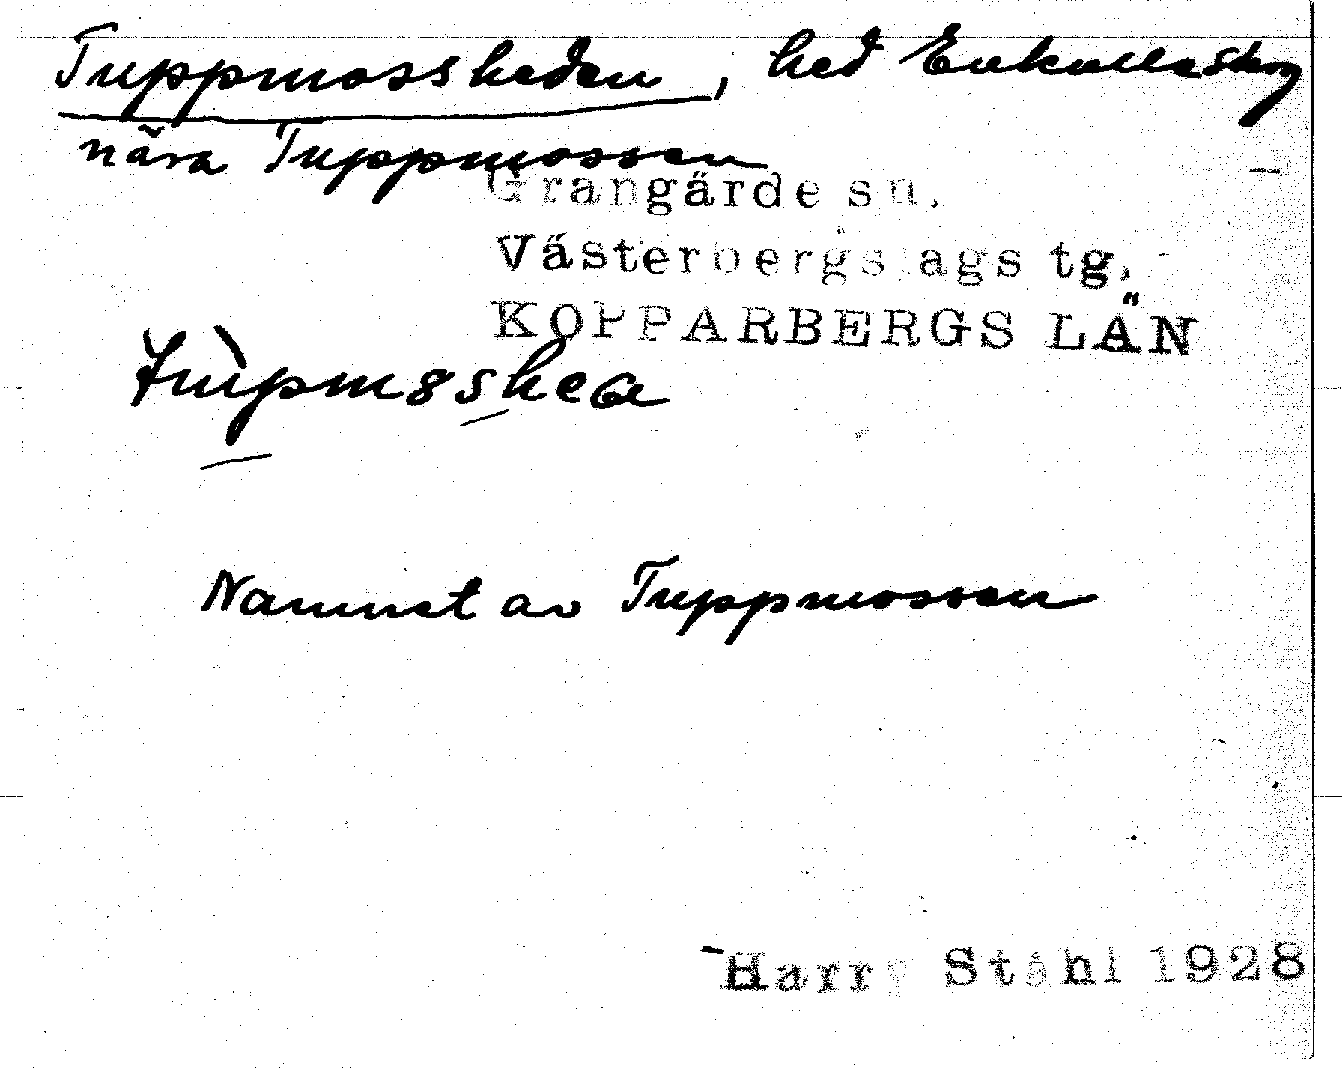 Tuppmossheden, hed Enkullasskog
nära Tuppmossen
Grangärde sn.
Västerbergslags tg.
KOPPARBERGS LÄN
Namnet av Tuppmossen
Harry Ståhl 1928